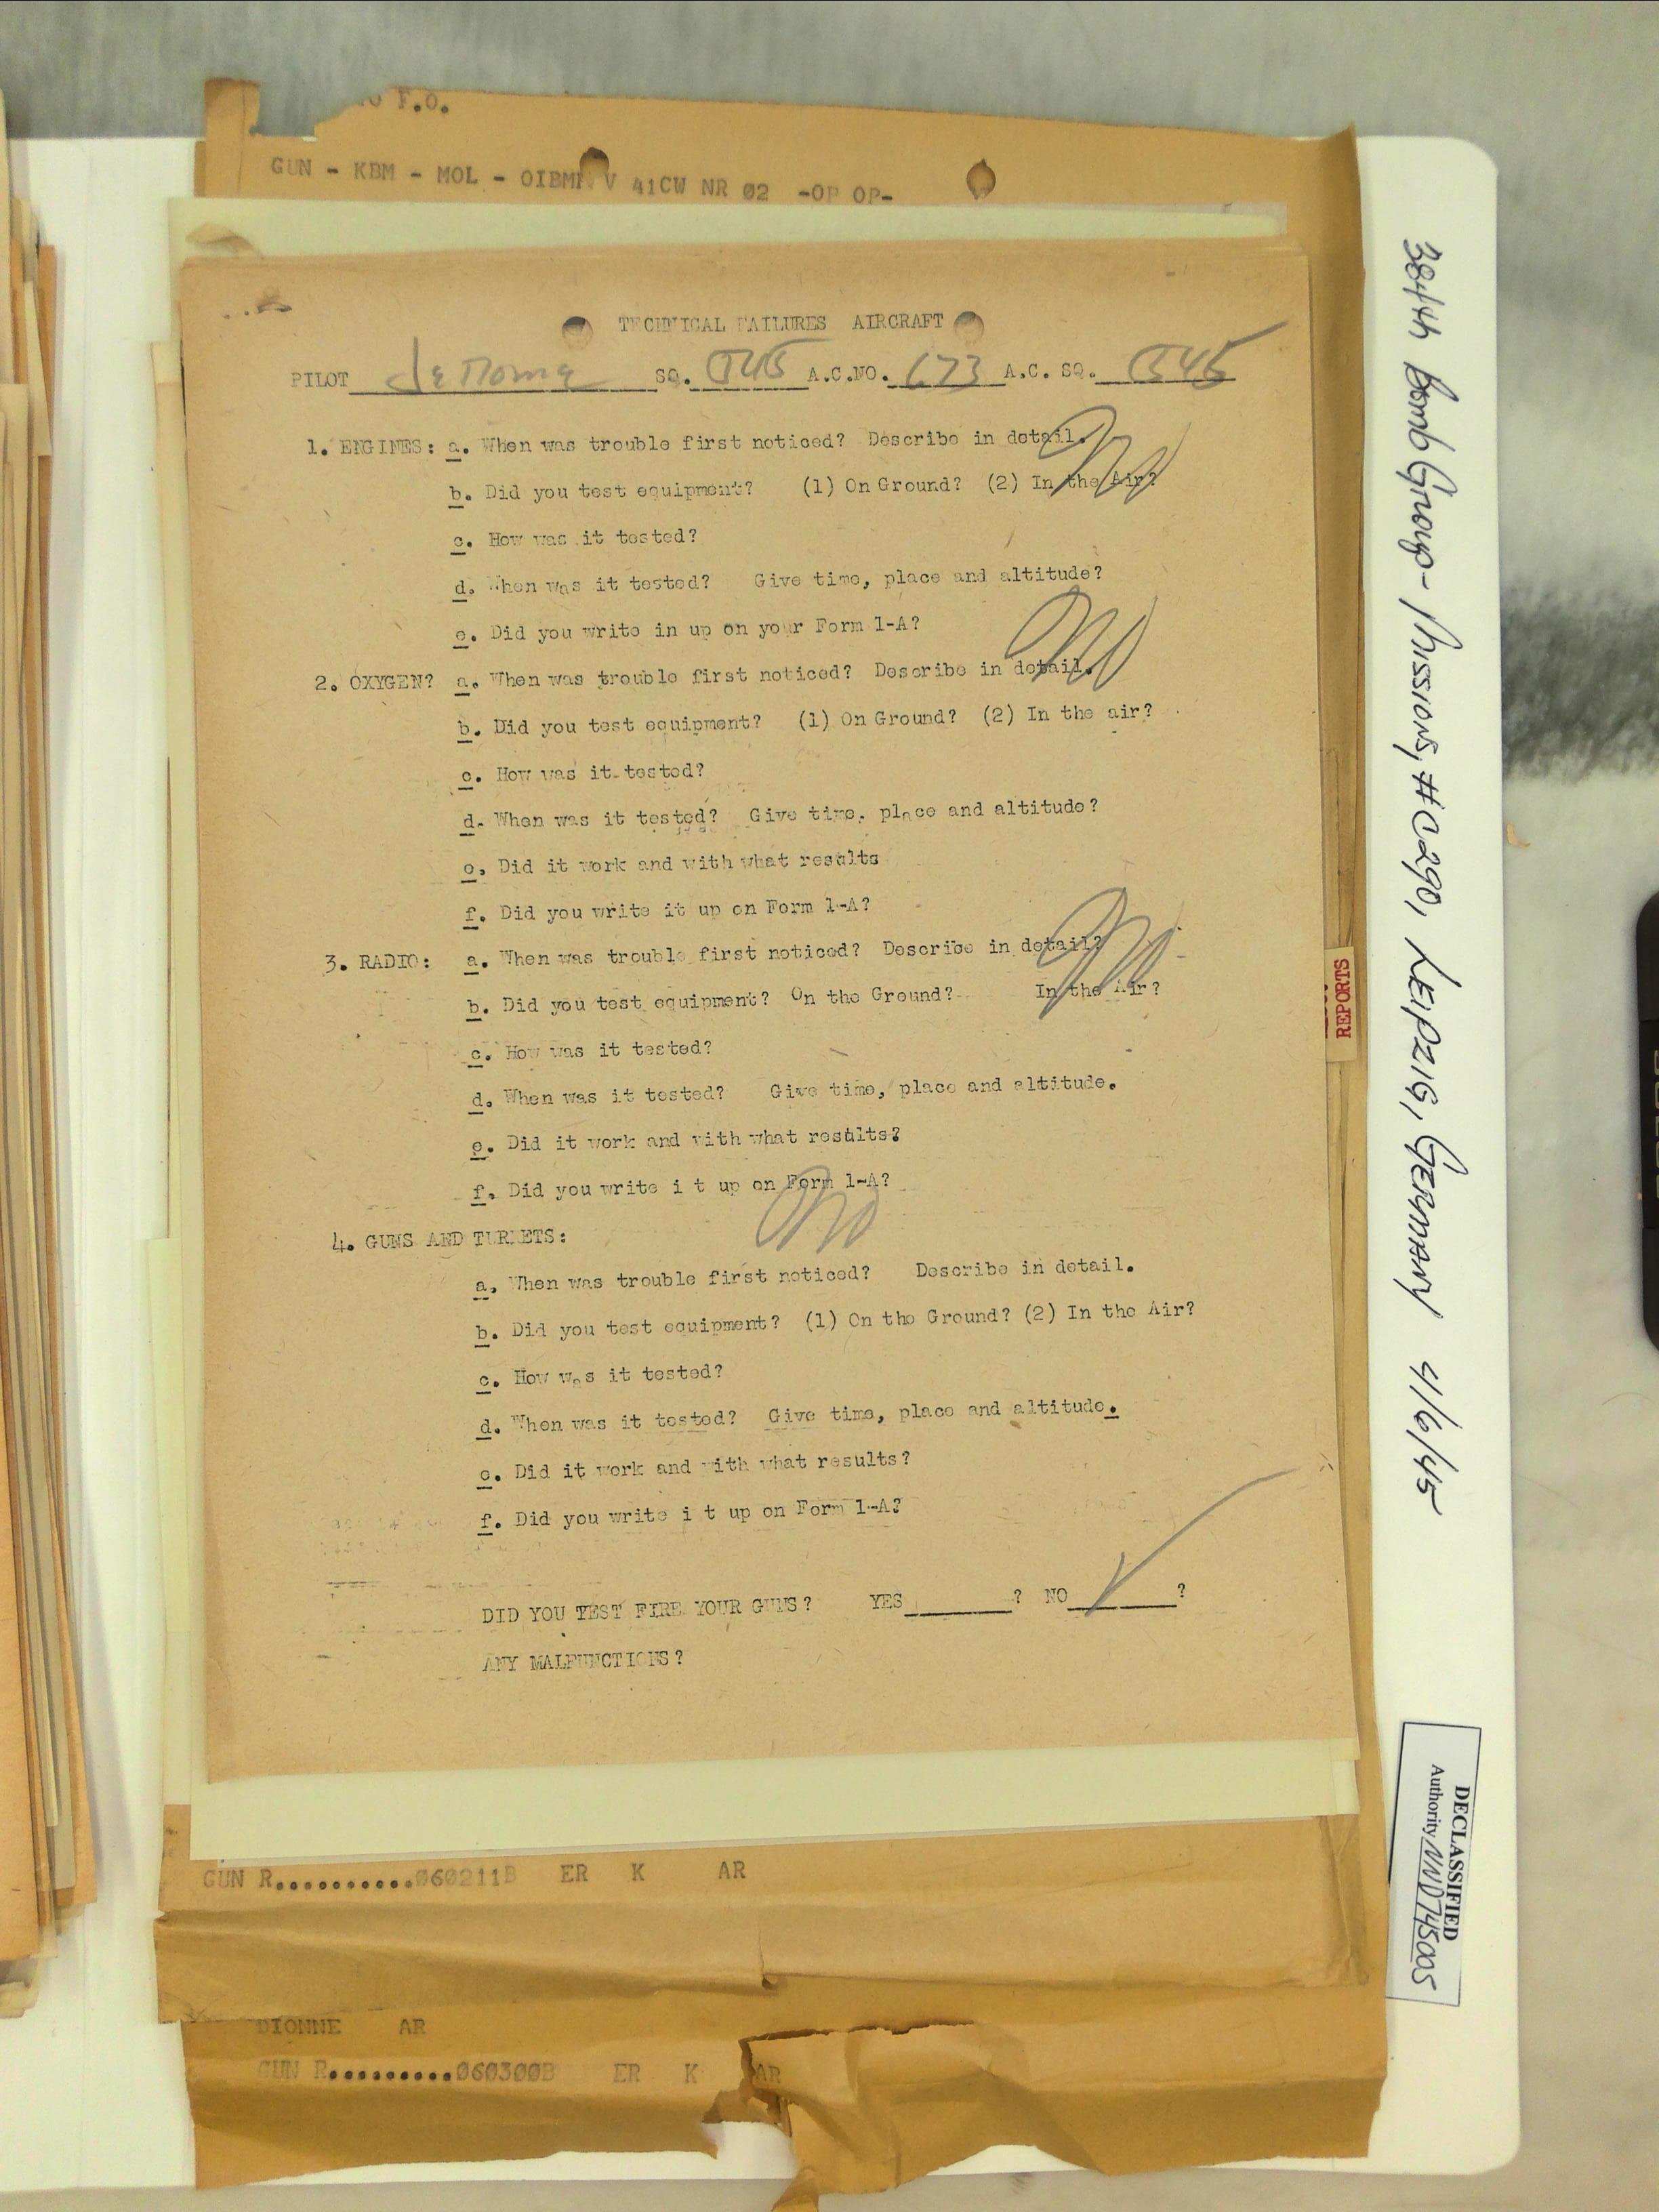 F.O.
GUN - KBM - MOL - OIBMR V 41CW NR 02 -OP OP-
TECHNICAL FAILURES AIRCRAFT
PILOT SQ. 545 A.C.NO. 673 A.C. SQ. 545
1. ENGINES: a. When was trouble first noticed? Describe in detail. No
b. Did you test equipment? (1) On Ground? (2) In the Air?
c. How was it tested?
d. When was it tested? Give time, place and altitude?
e. Did you write in up on your Form 1-A?
2. OXYGEN? a. When was trouble first noticed? Describe in detail. No
b. Did you test equipment? (1) On Ground? (2) In the air?
c. How was it tested?
d. When was it tested? Give time, place and altitude?
e. Did it work and with what results
f. Did you write it up on Form 1-A?
3. RADIO: a. When was trouble first noticed? Describe in detail? No
b. Did you test equipment? On the Ground? In the Air?
c. How was it tested?
d. When was it tested? Give time, place and altitude.
e. Did it work and with what results?
f. Did you write i t up on Form 1-A?
4. GUNS AND TURRETS: No
a. When was trouble first noticed? Describe in detail.
b. Did you test equipment? (1) On the Ground? (2) In the Air?
c. How was it tested?
d. When was it tested? Give time, place and altitude.
e. Did it work and with what results?
f. Did you write i t up on Form 1-A?
DID YOU TEST FIRE YOUR GUNS? YES ? NO ✓ ?
ANY MALFUNCTIONS?
GUN R..........060211B ER K AR
DIONNE AR
GUN R.........060300B ER K AR
REPORTS
384th Bomb Group - Missions, #C290, LEIPZIG, GERMANY 4/6/45
DECLASSIFIED
Authority NND745005